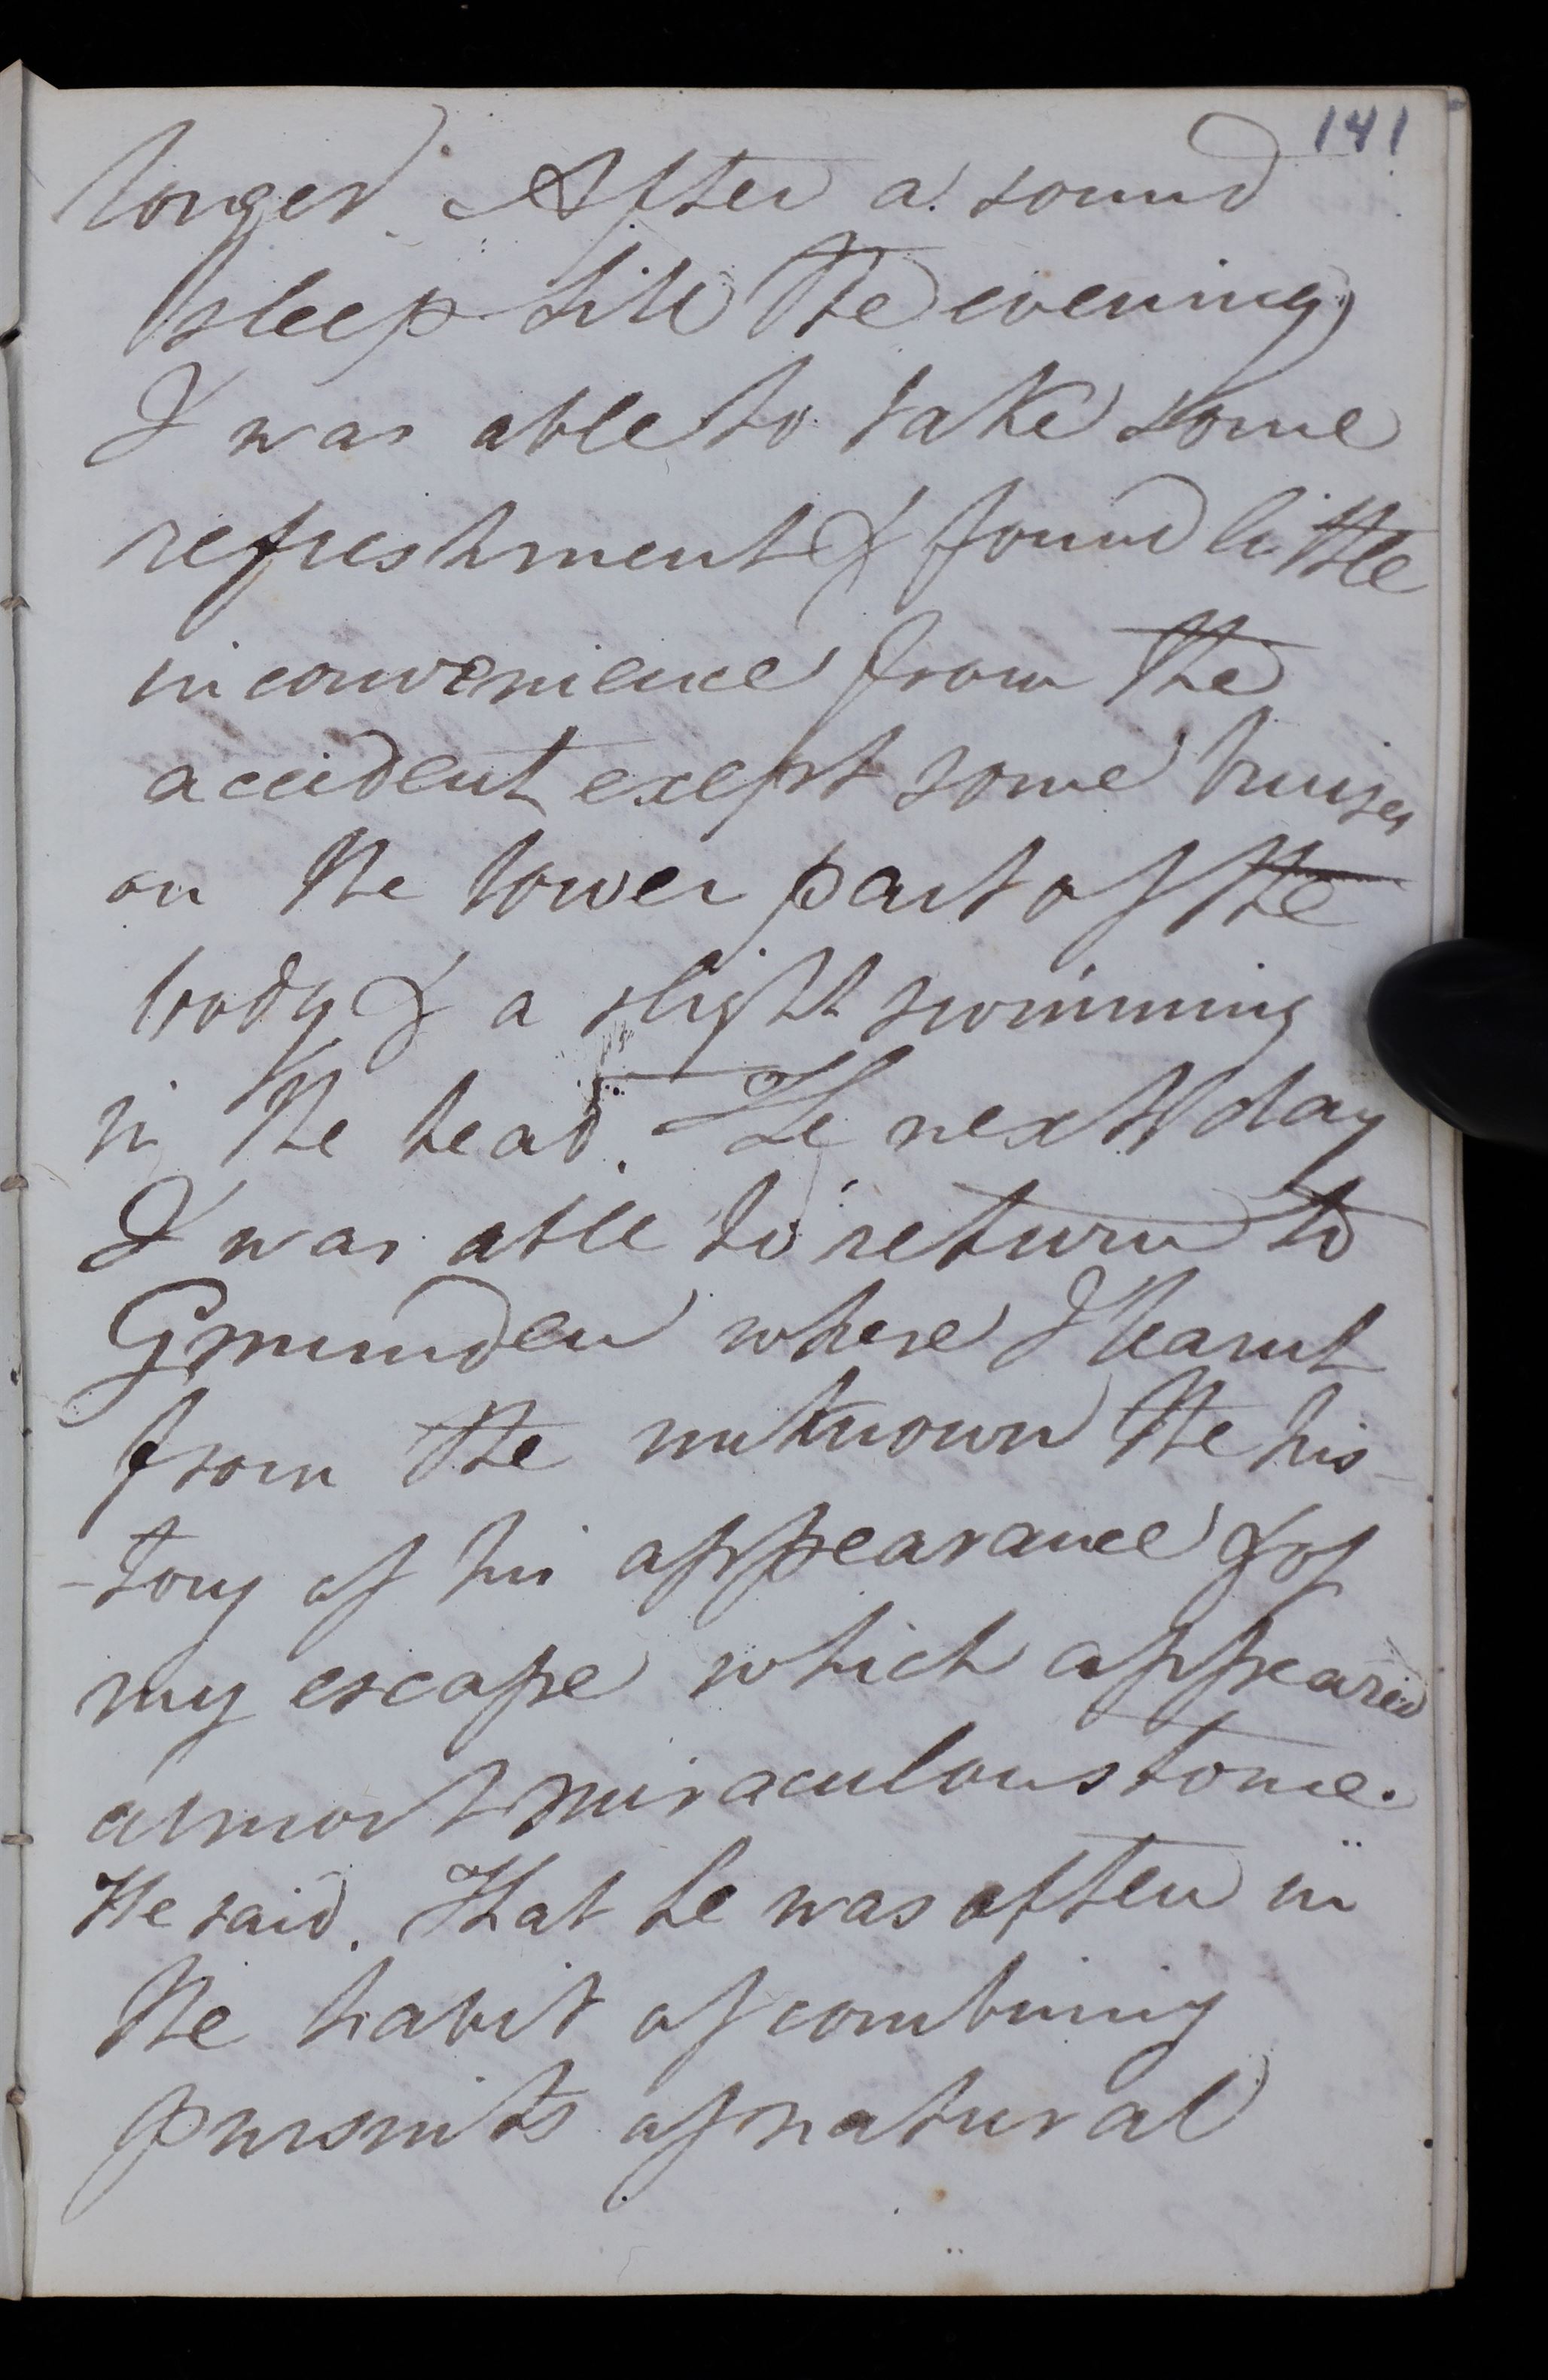 141
longer. After a sound
sleep till the evening,
I was able to take some
refreshment & found little
inconvenience from the
accident except some bruises
on the lower part of the
body & a slight swimming
in the head. The next day
I was able to return to
Gmunden where I learnt
from the unknown the his-
-tory of his appearance & of
my escape which appeared
almost miraculous to me.
He said. That he was often in
the habit of combining
pursuits of natural